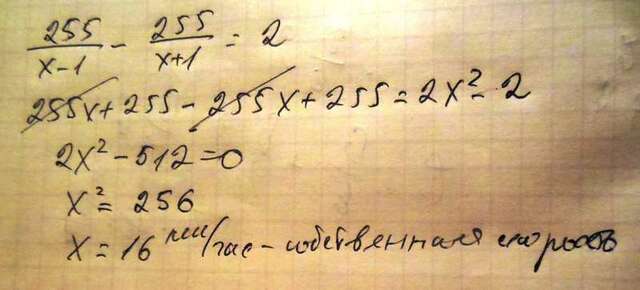 255/x-1 - 255/x+1 = 2
255x+255-255x+255=2x²-2
2x²-512=0
x²=256
x=16 км/час - собственная скорость